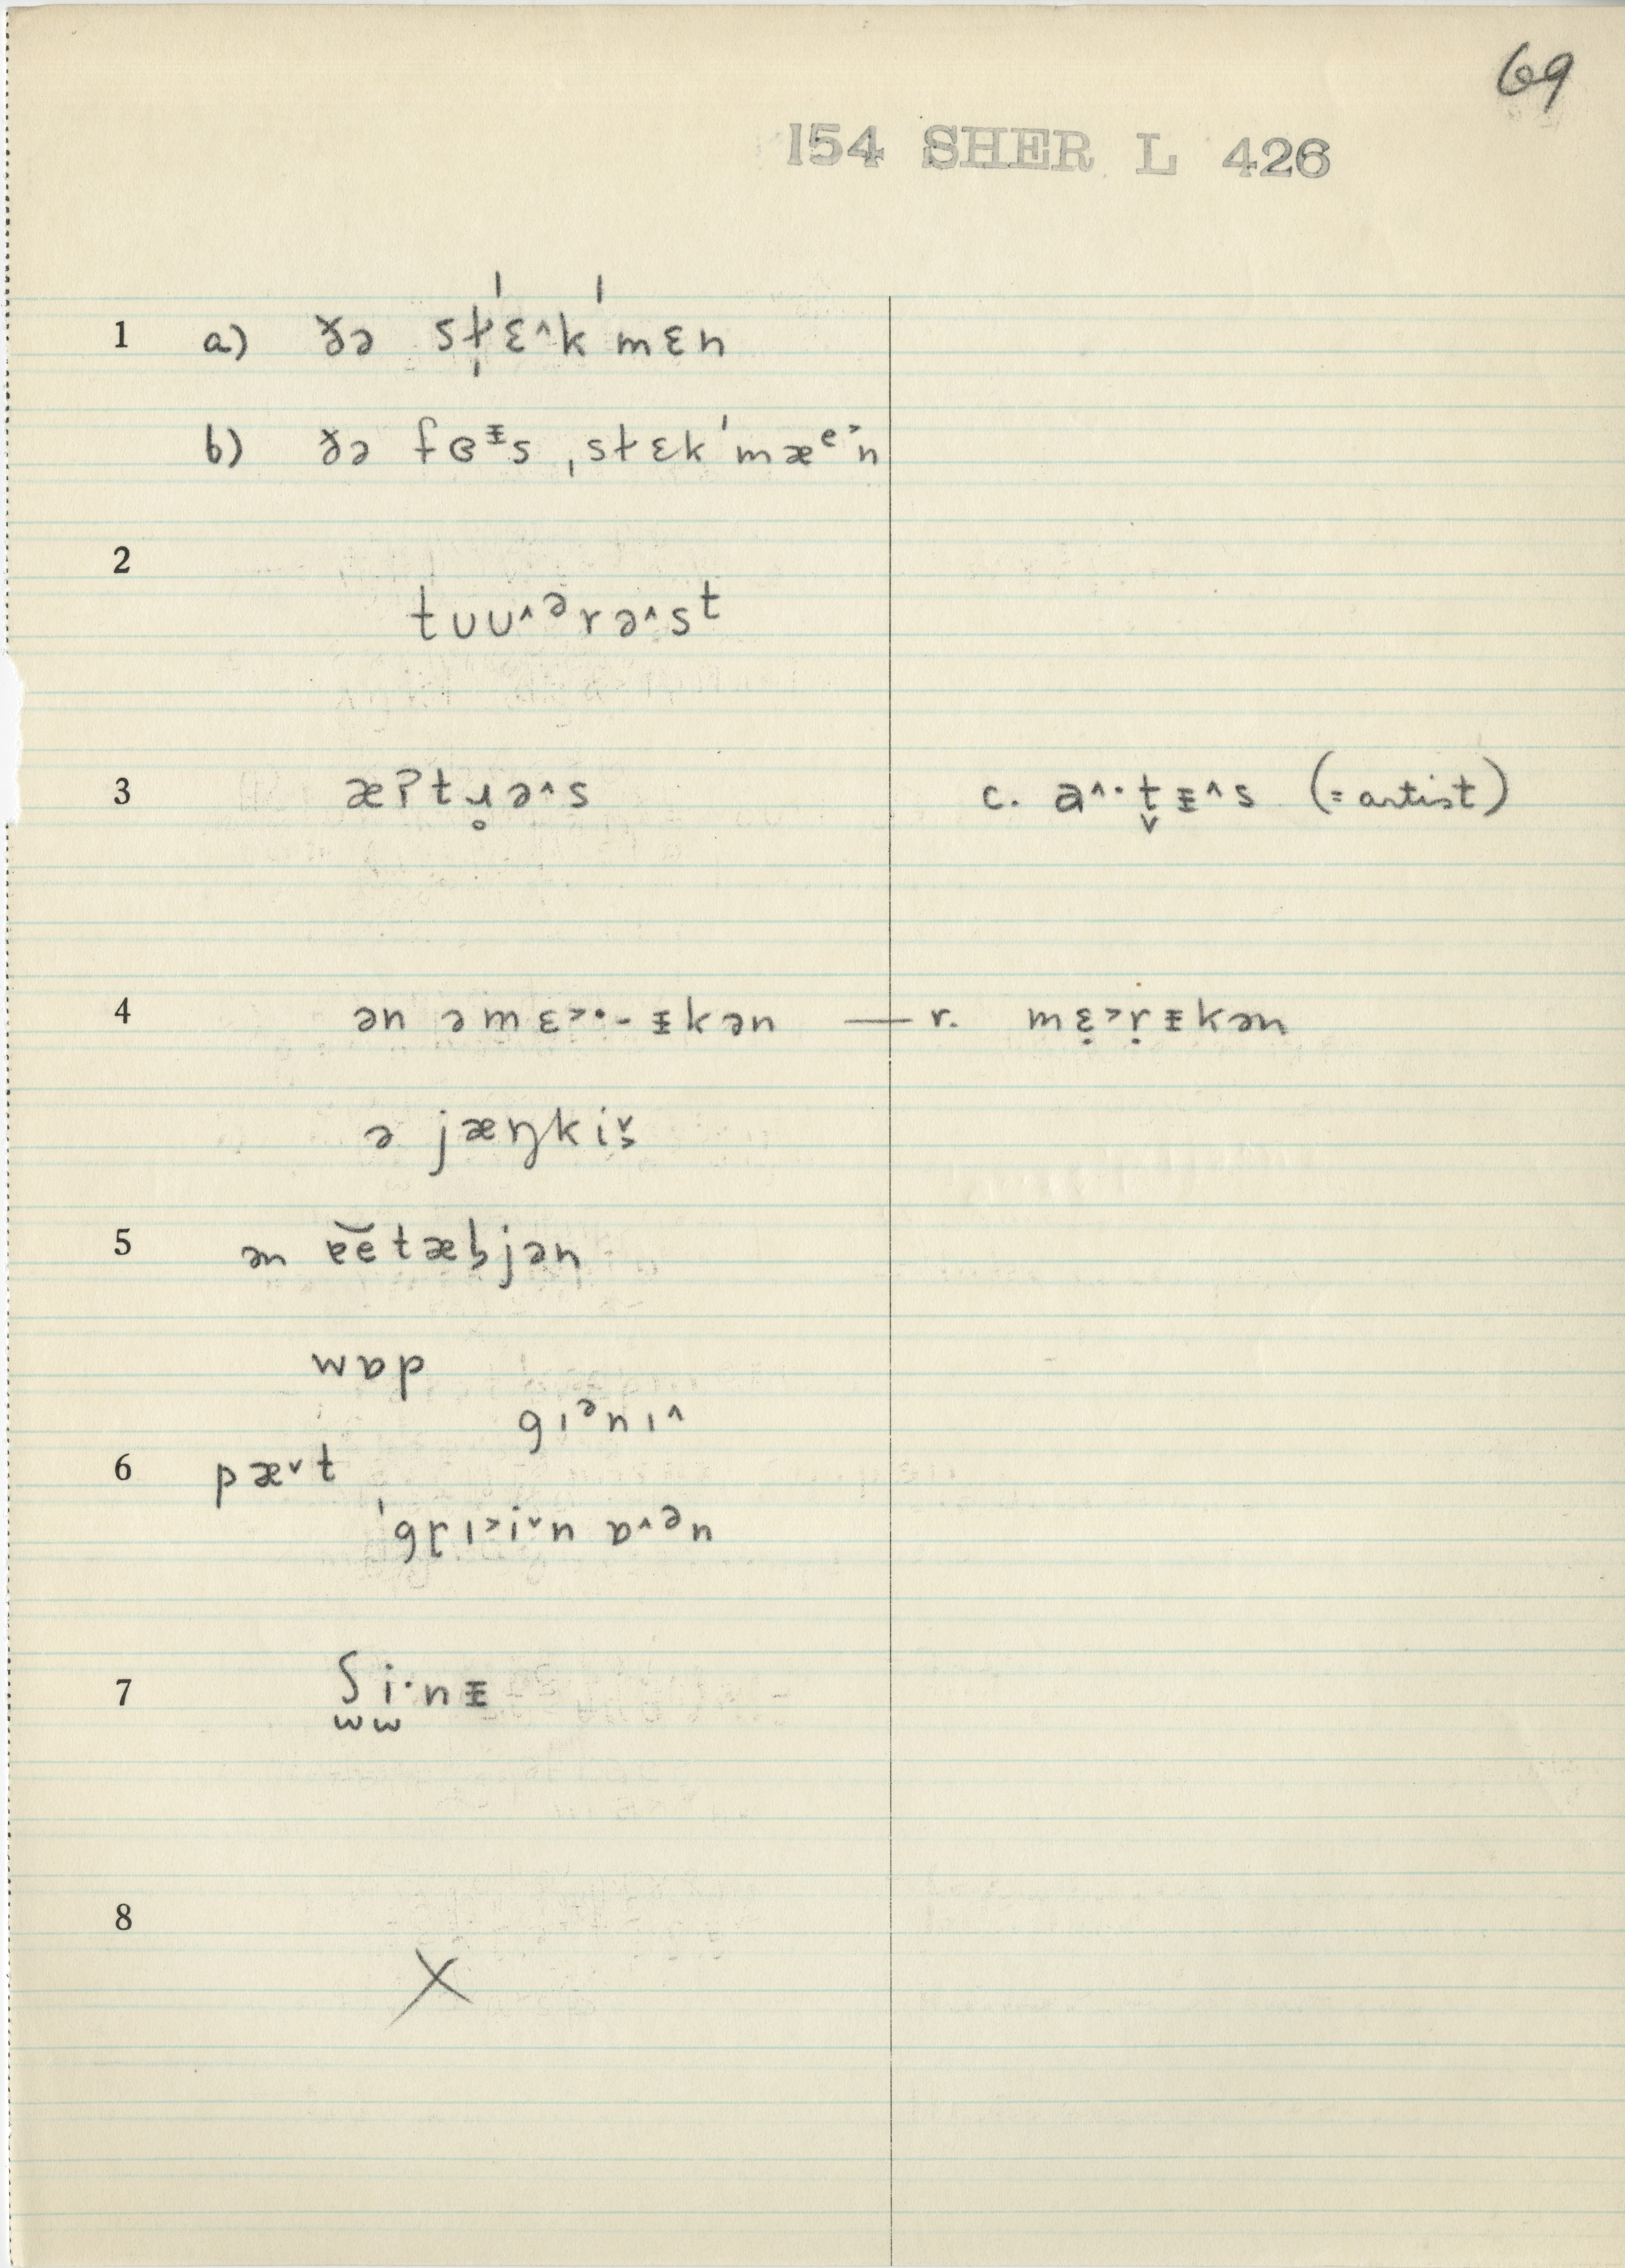 69
154 SHER L 426
1 a) ɤə st̵ɛ^k'mɛn
b) ɤə fɵᵻs ˌst̵ɛk'mæᵉ˃n
2
tʊʊ^ᵊrə^sᵗ
3 æʔtɹ̥ə^s c. a^·t̬ᵻ^s (= artist)
4 ən əmɛ˃·-ᵻkən — r. mɛ̣˃ṛᵻkən
ə jæŋkiš
5 ən ɐ̆ĕtæb̡jən
wɒp
gɪᵊnɪ^
6 pæ˅t
'gɽɪ˃i˅n ɒ^ᵊn
7 ʃi·nᵻ
w w
8
X